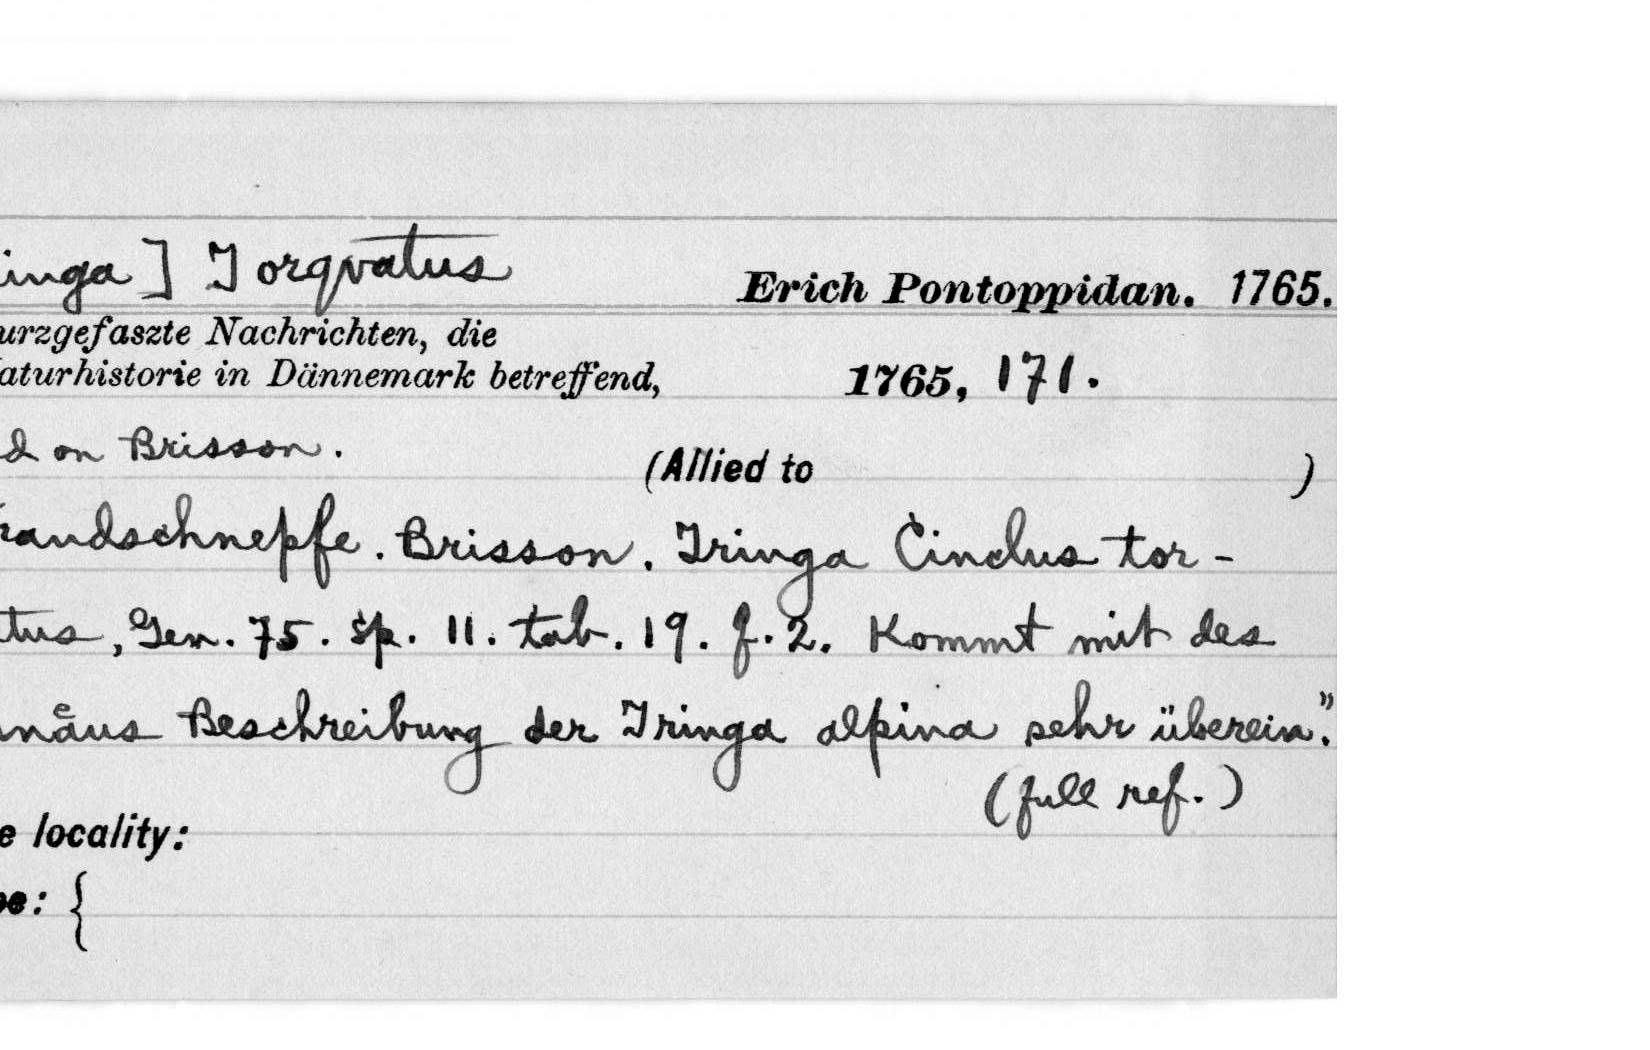 inga] Torqvatus
Erich Pontoppidan. 1765.
urzgefaszte Nachrichten, die
aturhistorie in Dännemark betreffend, 1765, 171.
d on Brisson.
(Allied to )
randschnepfe. Brisson. Tringa Cinclus tor-
tus, Gen. 75. sp. 11. tab. 19. f. 2. Kommt mit des
nnåus Beschreibung der Tringa alpina sehr überein."
(full ref.)
e locality:
pe: {